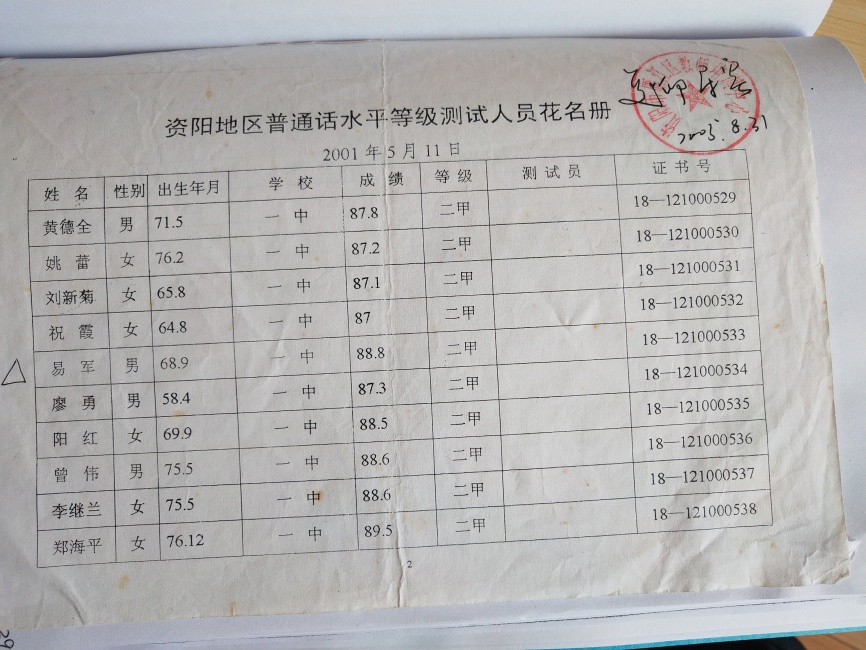 资阳地区普通话水平等级测试人员花名册
2005.8.31
2001年5月11日
姓 名 性别 出生年月 学 校 成 绩 等 级 测 试 员 证 书 号
黄德全 男 71.5 一 中 87.8 二甲 18—121000529
姚 蕾 女 76.2 一 中 87.2 二甲 18—121000530
刘新菊 女 65.8 一 中 87.1 二甲 18—121000531
祝 霞 女 64.8 一 中 87 二甲 18—121000532
易 军 男 68.9 一 中 88.8 二甲 18—121000533
廖 勇 男 58.4 一 中 87.3 二甲 18—121000534
阳 红 女 69.9 一 中 88.5 二甲 18—121000535
曾 伟 男 75.5 一 中 88.6 二甲 18—121000536
李继兰 女 75.5 一 中 88.6 二甲 18—121000537
郑海平 女 76.12 一 中 89.5 二甲 18—121000538
2
29